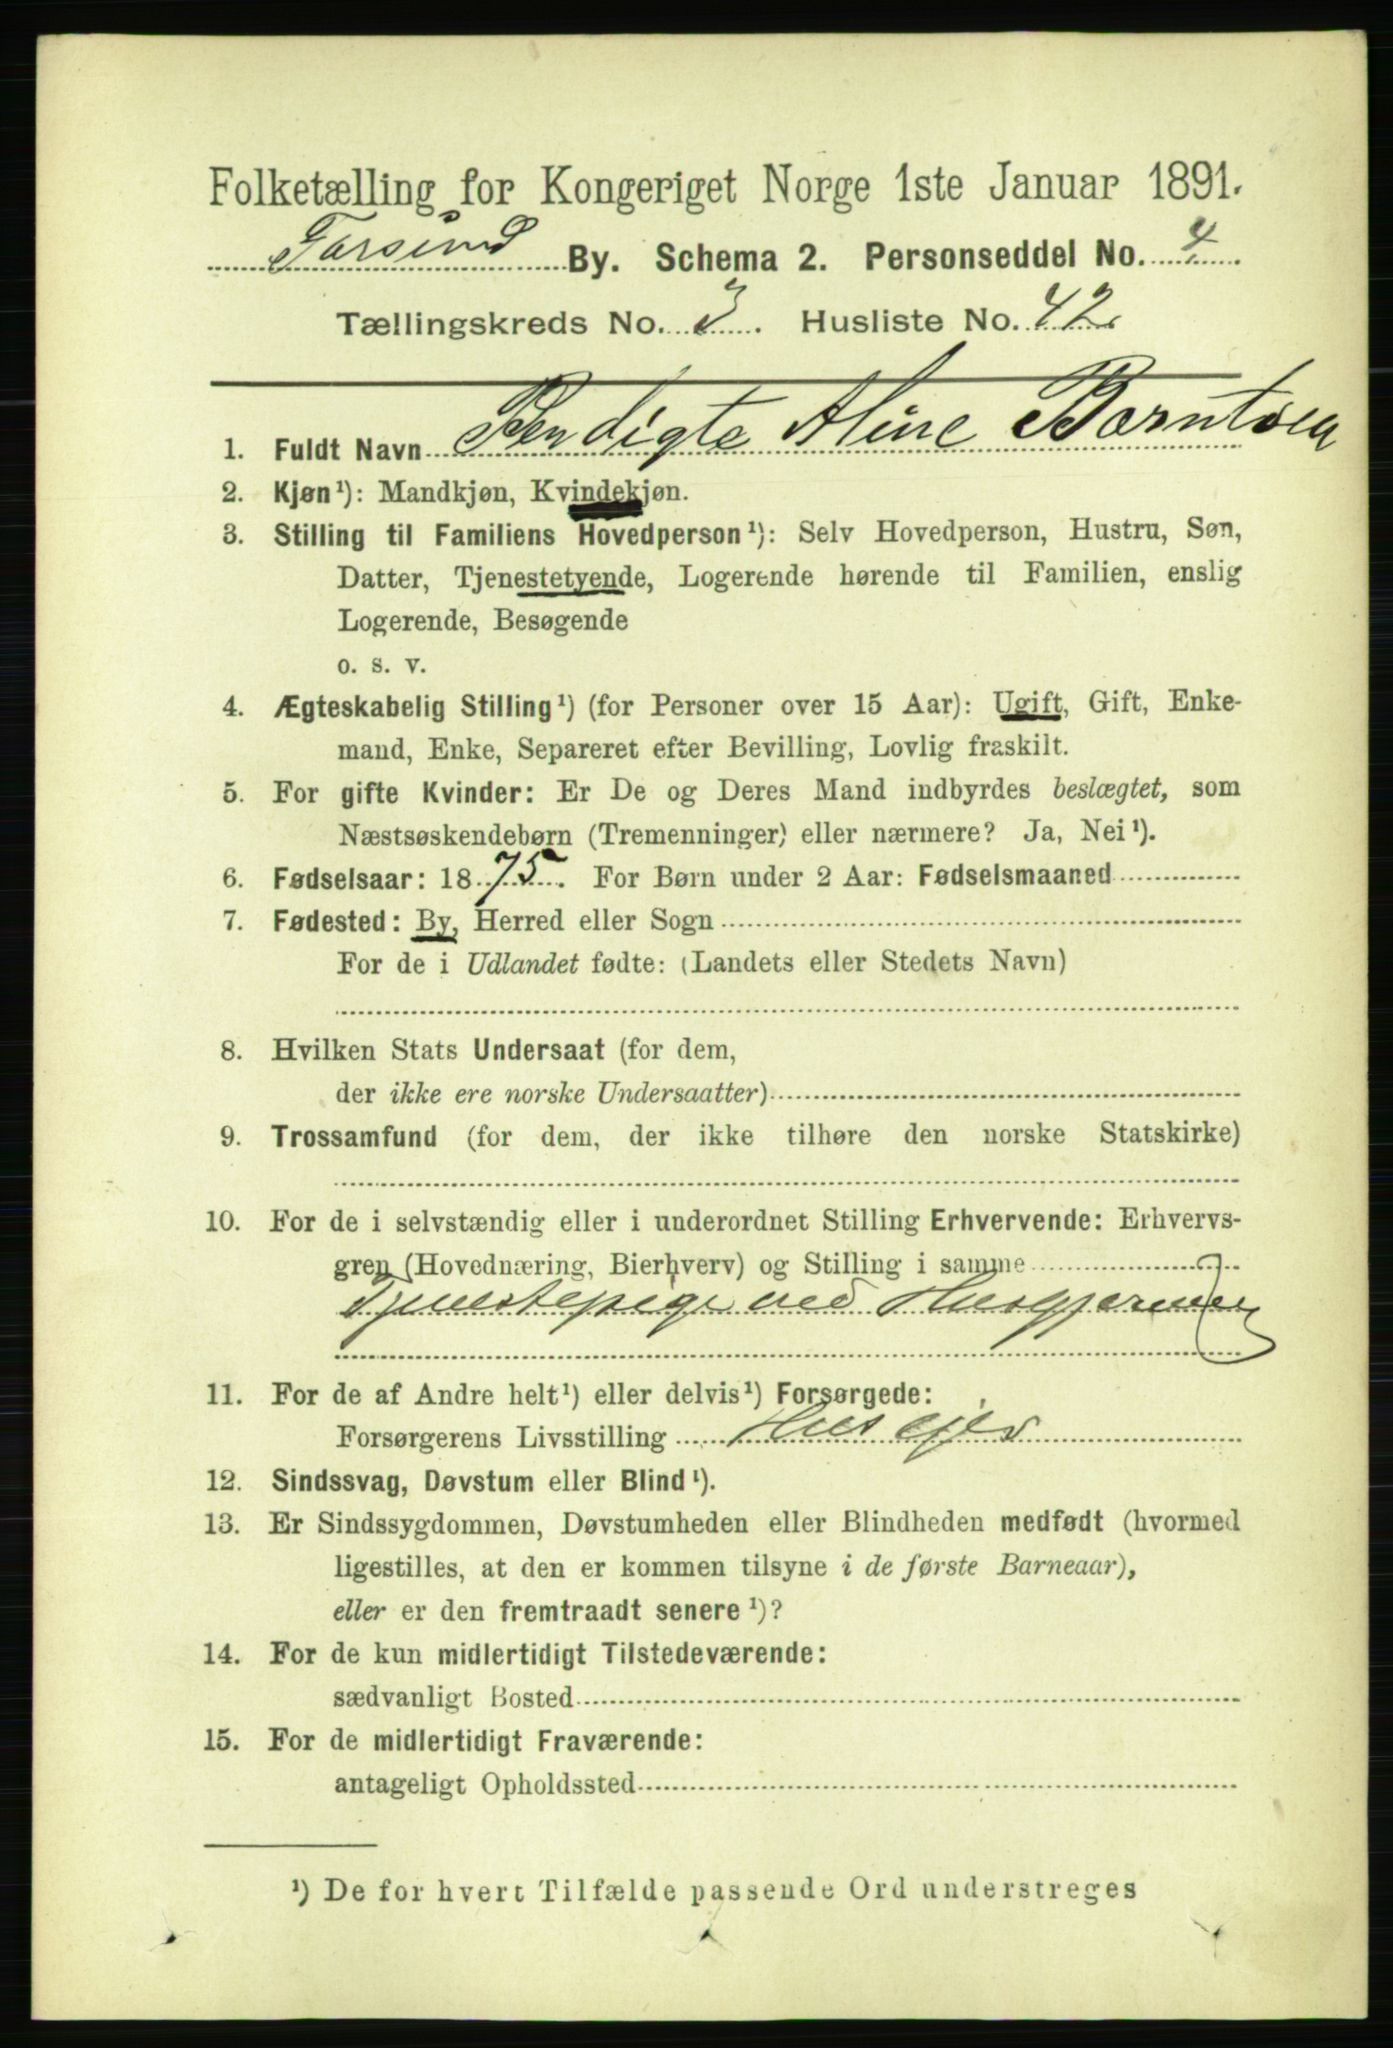 Folketælling for Kongeriget Norge 1ste Januar 1891.
Farsund By. Schema 2. Personseddel No. 4
Tællingskreds No. 3. Husliste No. 42
1. Fuldt Navn Bendigte Aline Berntsen
2. Kjøn¹): Mandkjøn, Kvindekjøn.
3. Stilling til Familiens Hovedperson¹): Selv Hovedperson, Hustru, Søn,
Datter, Tjenestetyende, Logerende hørende til Familien, enslig
Logerende, Besøgende
o. s. v.
4. Ægteskabelig Stilling¹) (for Personer over 15 Aar): Ugift, Gift, Enke-
mand, Enke, Separeret efter Bevilling, Lovlig fraskilt.
5. For gifte Kvinder: Er De og Deres Mand indbyrdes beslægtet, som
Næstsøskendebørn (Tremenninger) eller nærmere? Ja, Nei¹).
6. Fødselsaar: 1875. For Børn under 2 Aar: Fødselsmaaned
7. Fødested: By, Herred eller Sogn
For de i Udlandet fødte: (Landets eller Stedets Navn)
8. Hvilken Stats Undersaat (for dem,
der ikke ere norske Undersaatter)
9. Trossamfund (for dem, der ikke tilhøre den norske Statskirke)
10. For de i selvstændig eller i underordnet Stilling Erhvervende: Erhvervs-
gren (Hovednæring, Bierhverv) og Stilling i samme
Tjenestepige ved Husgjerning
11. For de af Andre helt¹) eller delvis¹) Forsørgede:
Forsørgerens Livsstilling Huseier
12. Sindssvag, Døvstum eller Blind¹).
13. Er Sindssygdommen, Døvstumheden eller Blindheden medfødt (hvormed
ligestilles, at den er kommen tilsyne i de første Barneaar),
eller er den fremtraadt senere¹)?
14. For de kun midlertidigt Tilstedeværende:
sædvanligt Bosted
15. For de midlertidigt Fraværende:
antageligt Opholdssted
¹) De for hvert Tilfælde passende Ord understreges